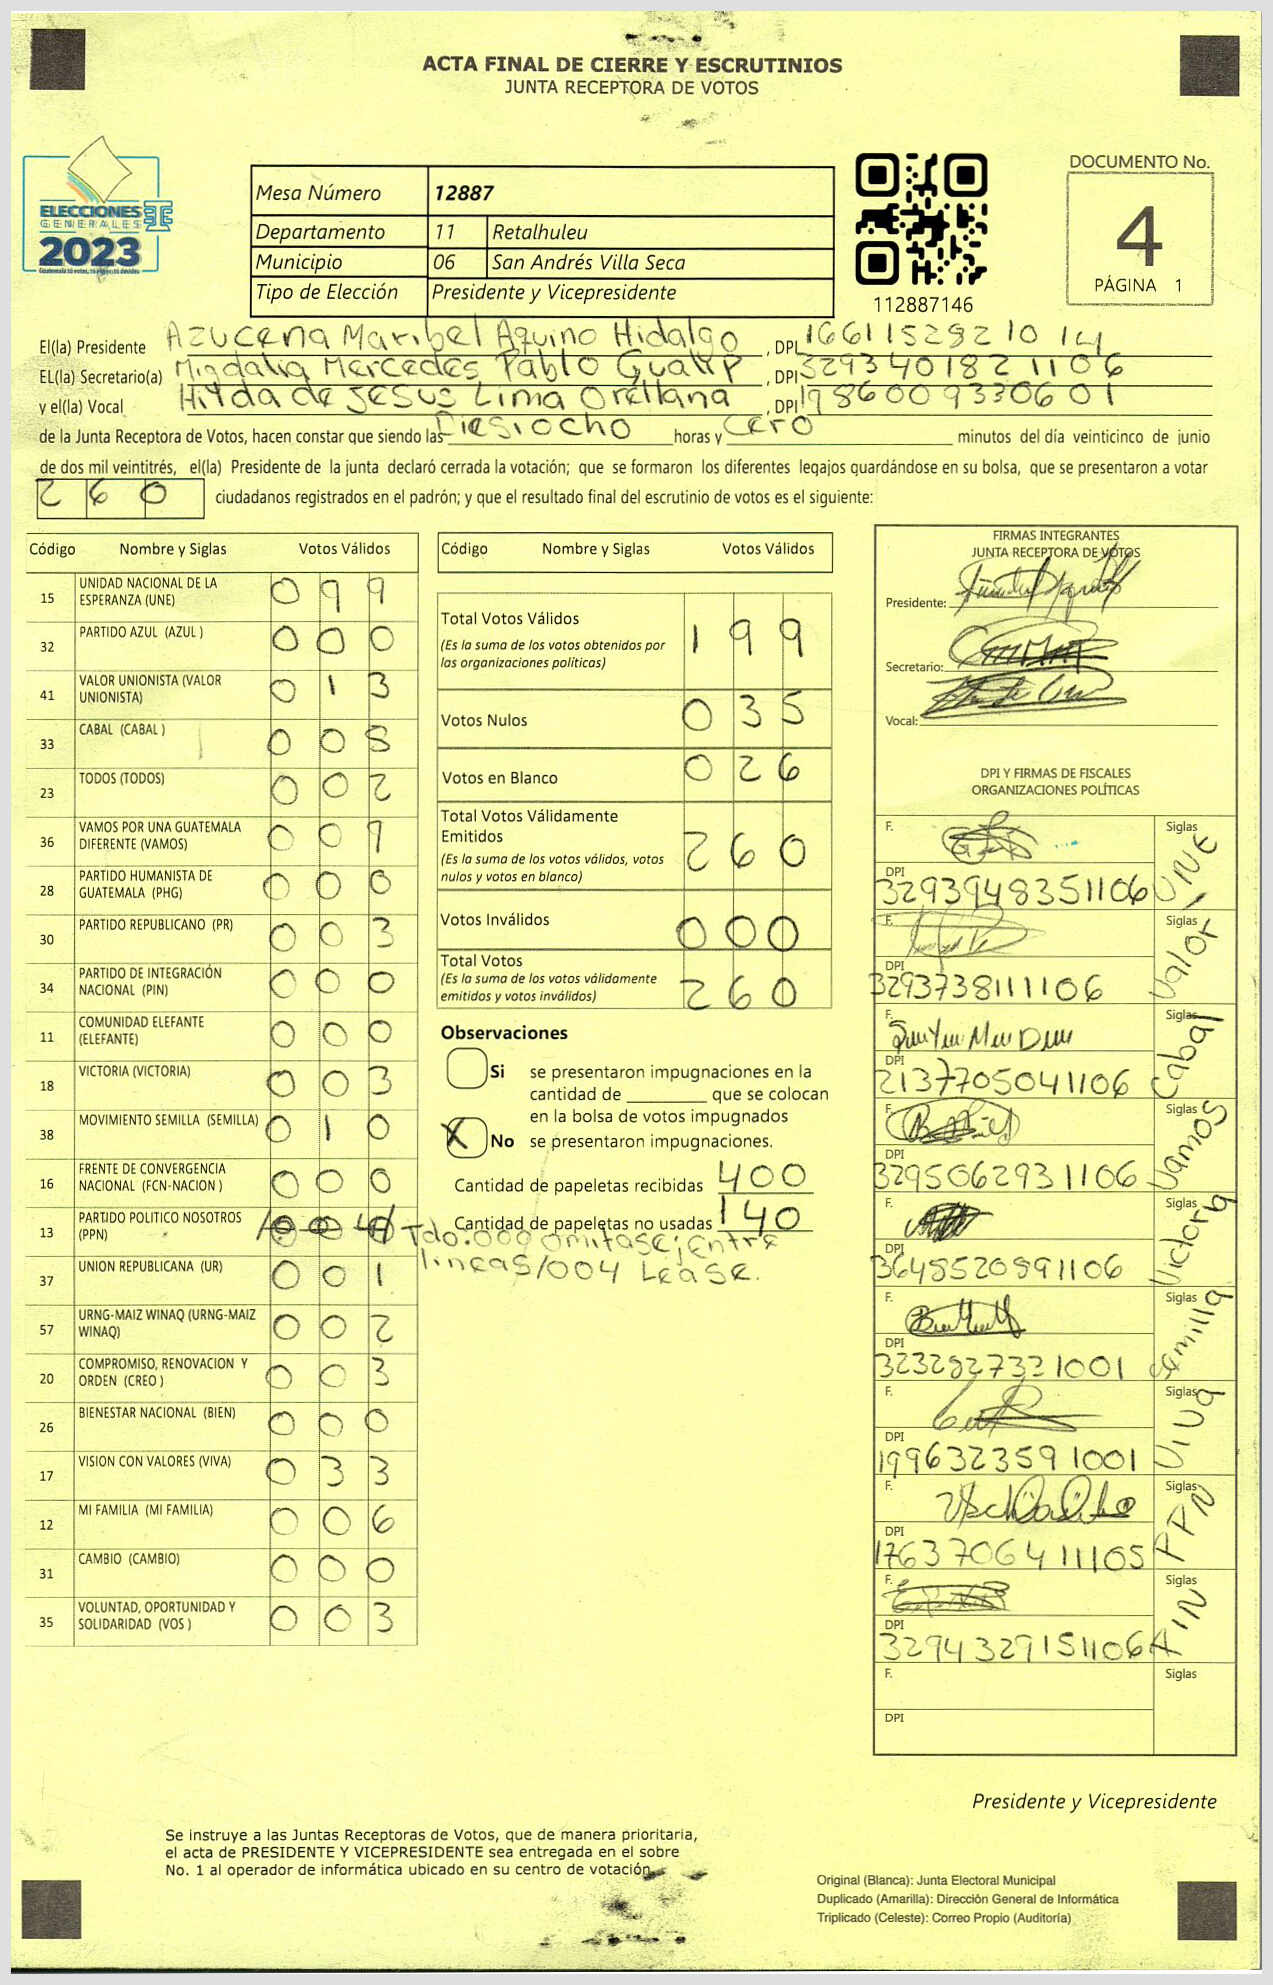 ACTA FINAL DE CIERRE Y ESCRUTINIOS
JUNTA RECEPTORA DE VOTOS
ELECCIONES
GENERALES
2023
Mesa Número 12887
Departamento 11 Retalhuleu
Municipio 06 San Andrés Villa Seca
Tipo de Elección Presidente y Vicepresidente
112887146
DOCUMENTO No.
4
PÁGINA 1
El(la) Presidente Azucena Maribel Aquino Hidalgo, DPI 1661152921014
EL(la) Secretario(a) Migdalia Mercedes Pablo, DPI 3293401821106
y el(la) Vocal Hilda de Jesus Lima Orellana, DPI 1986009330601
de la Junta Receptora de Votos, hacen constar que siendo las Diesiocho horas y Cero minutos del día veinticinco de junio
de dos mil veintitrés, el(la) Presidente de la junta declaró cerrada la votación; que se formaron los diferentes legajos guardándose en su bolsa, que se presentaron a votar
260 ciudadanos registrados en el padrón; y que el resultado final del escrutinio de votos es el siguiente:
Código Nombre y Siglas Votos Válidos
15 UNIDAD NACIONAL DE LA ESPERANZA (UNE) 099
32 PARTIDO AZUL (AZUL ) 000
41 VALOR UNIONISTA (VALOR UNIONISTA) 013
33 CABAL (CABAL ) 008
23 TODOS (TODOS) 002
36 VAMOS POR UNA GUATEMALA DIFERENTE (VAMOS) 009
28 PARTIDO HUMANISTA DE GUATEMALA (PHG) 000
30 PARTIDO REPUBLICANO (PR) 003
34 PARTIDO DE INTEGRACIÓN NACIONAL (PIN) 000
11 COMUNIDAD ELEFANTE (ELEFANTE) 000
18 VICTORIA (VICTORIA) 003
38 MOVIMIENTO SEMILLA (SEMILLA) 010
16 FRENTE DE CONVERGENCIA NACIONAL (FCN-NACION ) 000
13 PARTIDO POLITICO NOSOTROS (PPN) /004/
37 UNION REPUBLICANA (UR) 001
57 URNG-MAIZ WINAQ (URNG-MAIZ WINAQ) 002
20 COMPROMISO, RENOVACION Y ORDEN (CREO ) 003
26 BIENESTAR NACIONAL (BIEN) 000
17 VISION CON VALORES (VIVA) 033
12 MI FAMILIA (MI FAMILIA) 006
31 CAMBIO (CAMBIO) 000
35 VOLUNTAD, OPORTUNIDAD Y SOLIDARIDAD (VOS ) 003
Código Nombre y Siglas Votos Válidos
Total Votos Válidos 199
(Es la suma de los votos obtenidos por
las organizaciones políticas)
Votos Nulos 035
Votos en Blanco 026
Total Votos Válidamente
Emitidos 260
(Es la suma de los votos válidos, votos
nulos y votos en blanco)
Votos Inválidos 000
Total Votos 260
(Es la suma de los votos válidamente
emitidos y votos inválidos)
Observaciones
Si se presentaron impugnaciones en la
cantidad de ________ que se colocan
en la bolsa de votos impugnados
X No se presentaron impugnaciones.
Cantidad de papeletas recibidas 400
Cantidad de papeletas no usadas 140
Tdo:000 omitase; entre
lineas/004 Lease.
FIRMAS INTEGRANTES
JUNTA RECEPTORA DE VOTOS
Presidente:
Secretario:
Vocal:
DPI Y FIRMAS DE FISCALES
ORGANIZACIONES POLÍTICAS
F. Siglas UNE
DPI 3293948351106
F. Siglas Valor
DPI 3293738111106
F. Siglas Cabal
DPI 2137705041106
F. Siglas Vamos
DPI 3295062931106
F. Siglas Victoria
DPI 3648520891106
F. Siglas Semilla
DPI 3232827321001
F. Siglas Viva
DPI 1996323591001
F. Siglas PPN
DPI 1763706411105
F. Siglas
DPI 3294329151106
F. Siglas
DPI
Presidente y Vicepresidente
Se instruye a las Juntas Receptoras de Votos, que de manera prioritaria,
el acta de PRESIDENTE Y VICEPRESIDENTE sea entregada en el sobre
No. 1 al operador de informática ubicado en su centro de votación.
Original (Blanca): Junta Electoral Municipal
Duplicado (Amarilla): Dirección General de Informática
Triplicado (Celeste): Correo Propio (Auditoría)